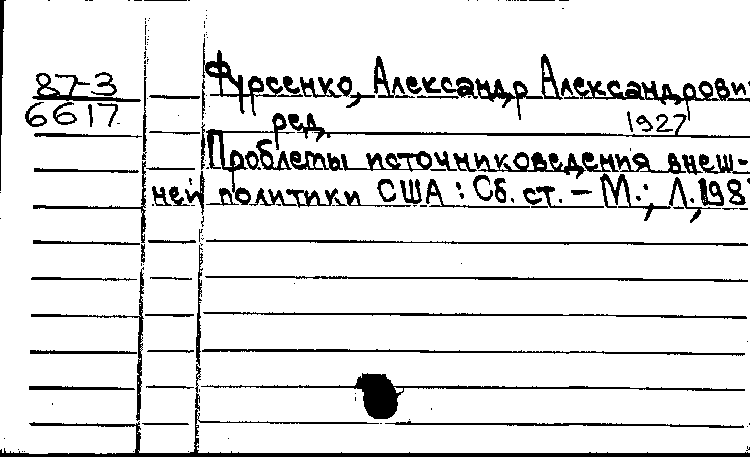 87-3
6617
Фурсенко, Александр Александрови
ред. 1927
Проблемы источниковедения внеш-
ней политики США : Сб. ст. – М.; Л., 198